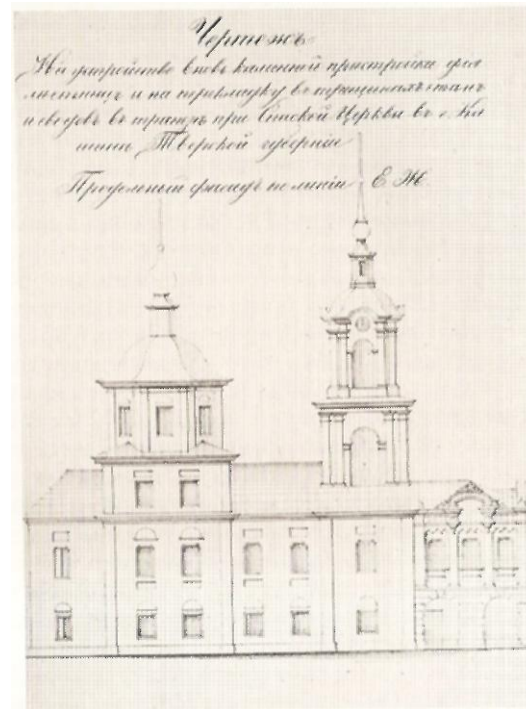 Чертежъ
На устройство вновь каменной пристройки для
лѣстницъ и на перекладку въ трещинахъ стѣнъ
и сводовъ въ при Спаской Церкви въ г. Ка
шинѣ Тверской губерніи
Продольный фасадъ по линіи Е Ж.